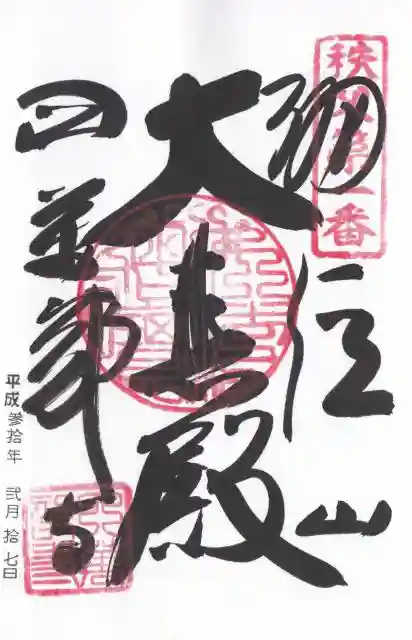 秩父第一番
山
大悲殿
四萬部寺
平成参拾年 弐月 拾七日